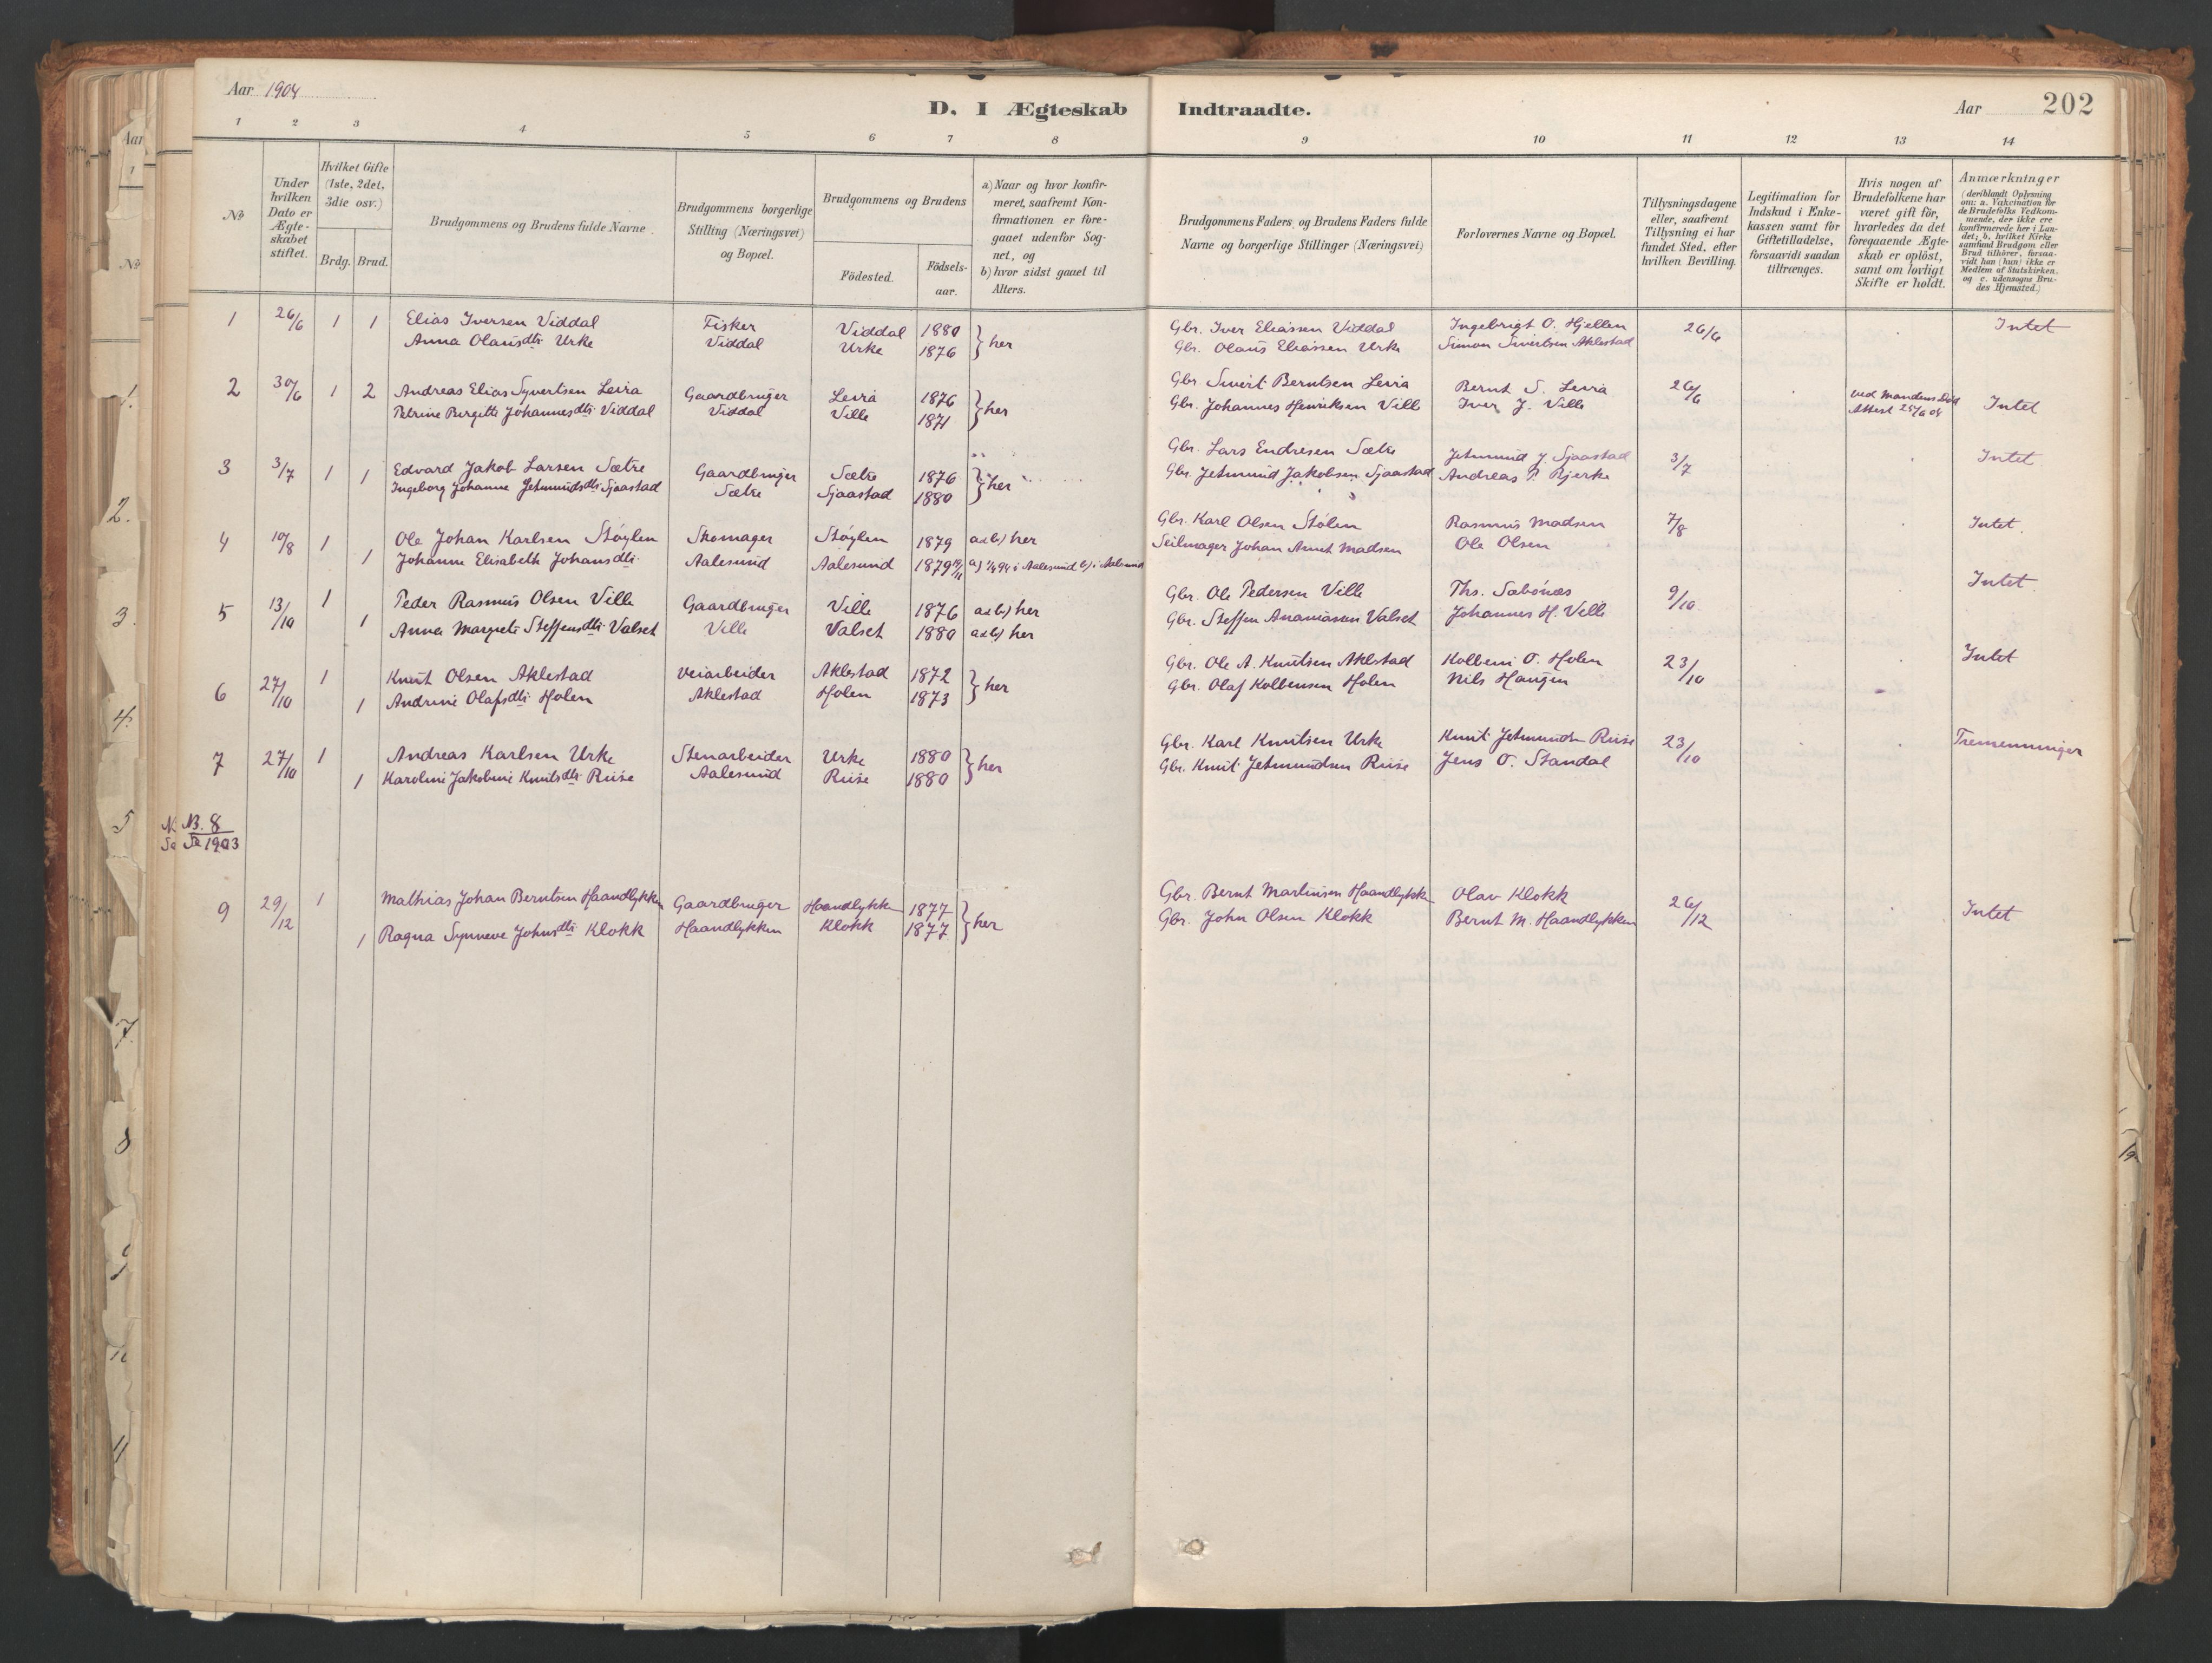 Aar 1904
D. I Ægteskab Indtraadte.
Aar 202
1 2 3 4 5 6 7 8 9 10 11 12 13 14
№
Under hvilken Dato er Ægteskabet stiftet.
Hvilket Gifte (1ste, 2det, 3die osv.)
Brdg. Brud.
Brudgommens og Brudens fulde Navne.
Brudgommens borgerlige Stilling (Næringsvei) og Bopæl.
Brudgommens og Brudens
Födested. Födsels-aar.
a) Naar og hvor konfir-
meret, saafremt Kon-
firmationen er fore-
gaaet udenfor Sog-
net, og
b) hvor sidst gaaet til
Alters.
Brudgommens Faders og Brudens Faders fulde
Navne og borgerlige Stillinger (Næringsvei)
Forlovernes Navne og Bopæl.
Tillysningsdagene
eller, saafremt
Tillysning ei har
fundet Sted, efter
hvilken Bevilling.
Legitimation for
Indskud i Enke-
kassen samt for
Giftetilladelse,
forsaavidt saadan
tiltrænges.
Hvis nogen af
Brudefolkene har
været gift för,
hvorledes da det
foregaaende Ægte-
skab er oplöst,
samt om lovligt
Skifte er holdt.
Anmærkninger
(deriblandt Oplysning
om: a. Vakcination for
de Brudefolks Vedkom-
mende, der ikke ere
konfirmerede her i Lan-
det; b. hvilket Kirke
samfund Brudgom eller
Brud tilhörer, forsaa-
vidt han (hun) ikke er
Medlem af Statskirken.
og c. udensogns Bru-
des Hjemsted.)
1 26/6 1 1 Elias Iversen Viddal Fisker Viddal 1880 } her Gbr. Iver Eliassen Viddal Ingebrigt O. Hjellen 26/6 Intet
Anna Olausdtr Urke Viddal Urke 1876 Gbr. Olaus Eliassen Urke Simon Sivertsen Aklestad
2 30/6 1 2 Andreas Elias Syvertsen Leira Gaardbruger Leira 1876 } her Gbr. Sivert Berntsen Leira Bernt S. Leira 26/6 ved Mandens Död Intet
Petrine Birgitte Johannesdtr Viddal Viddal Ville 1871 Gbr. Johannes Henriksen Ville Iver J. Ville Attest 25/6 04
3 3/7 1 1 Edvard Jakob Larsen Sætre Gaardbruger Sætre 1876 } her Gbr. Lars Endresen Sætre Jetmund J. Sjaastad 3/7 Intet
Ingeborg Johanne Jetmundsdtr Sjaastad Sætre Sjaastad 1880 Gbr. Jetmund Jakobsen Sjaastad Andreas P. Bjerke
4 10/8 1 Ole Johan Karlsen Støylen Skomager Støylen 1879 a&b) her Gbr. Karl Olsen Stølen Rasmus Madsen 7/8 Intet.
1 Johanne Elisabeth Johansdtr Aalesund Aalesund 1879 a) 94 i Aalesund b) i Aalesund Seilmager Johan Arnt Madsen Ole Olsen
5 13/10 1 Peder Rasmus Olsen Ville Gaardbruger Ville 1876 a&b) her Gbr. Ole Pedersen Ville Ths. Sæbönæs 9/10 Intet.
1 Anna Margrete Steffensdtr Valset Ville Valset 1880 a&b) her Gbr. Steffen Ananiassen Valset Johannes H. Ville
6 27/10 1 Knut Olsen Aklestad Veiarbeider Aklestad 1872 } her Gbr. Ole A. Knutsen Aklestad Kolbein O. Holen 23/10 Intet
1 Andrine Olafsdtr Holen Aklestad Holen 1873 Gbr. Olaf Kolbensen Holen Nils Haugen
7 27/10 1 Andreas Karlsen Urke Stenarbeider Urke 1880 } her Gbr. Karl Knutsen Urke Knut Jetmundsn Riise 23/10 Tremenninger
1 Karoline Jakobine Knutsdtr Riise Aalesund Riise 1880 Gbr. Knut Jetmundsen Riise Jens O. Standal
NB. 8
Se 1903
9 29/12 1 Mathias Johan Berntsen Haandlykken Gaardbruger Haandlykk 1877 } her Gbr. Bernt Martinsen Haandlykk Olav Klokk 26/12 Intet
1 Ragna Synneve Johnsdtr Klokk Haandlykken Klokk 1877 Gbr. John Olsen Klokk Bernt M. Haandlykken